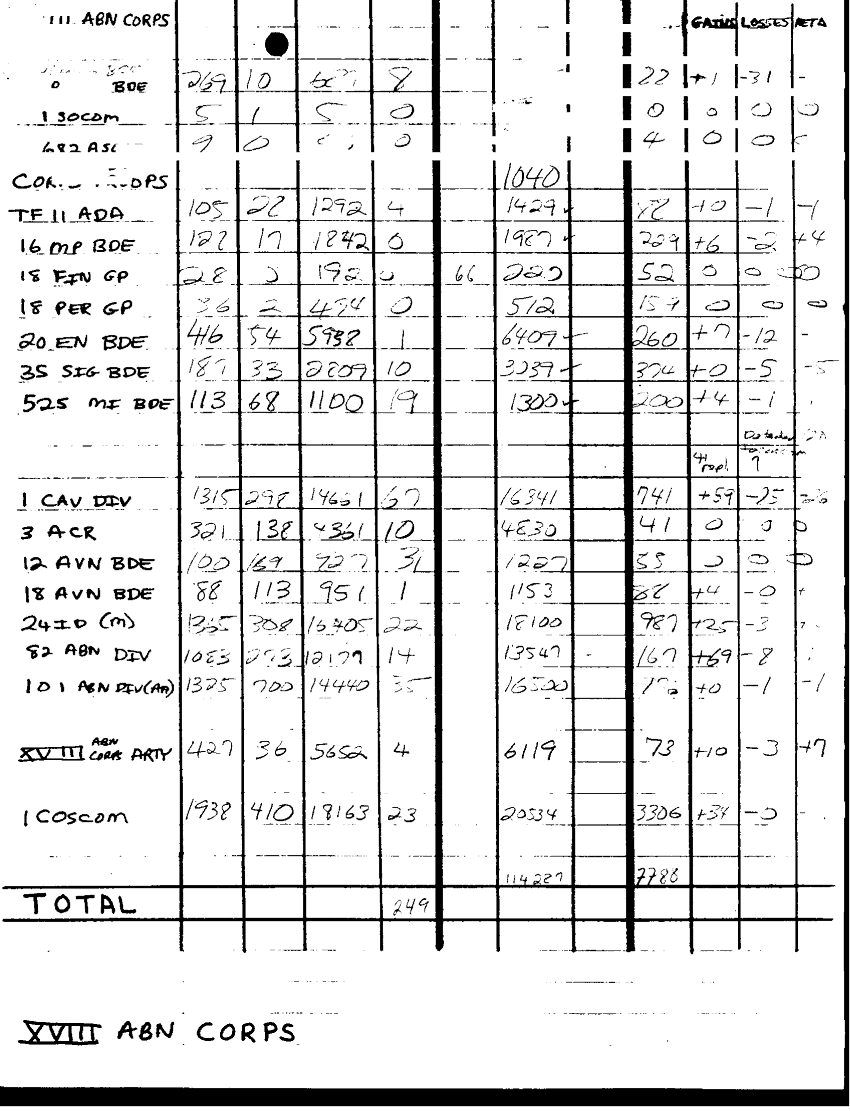 III ABN CORPS GAINS LOSSES NETA
BDE 269 10 8 22 +1 -31 -
1 SOCOM 5 1 5 0 0 0 0 0
682 9 0 0 4 0 0
1040
TF 11 ADA 105 22 1292 4 1429 ✓ +0 -1 -1
16 MP BDE 17 1842 0 1987 ✓ 229 +6 -2 +4
18 FIN GP 28 192 0 66 220 52 0 0 0
18 PER GP 36 2 474 0 512 0 0 0
20 EN BDE 416 54 5938 1 6409 260 +7 -12 -
35 SIG BDE 187 33 2809 10 3039 374 +0 -5 -5
525 MI BDE 113 68 1100 19 1300 ✓ 200 +4 -1
1 CAV DIV 1315 298 14661 67 16341 741 +59 -25
3 ACR 321 138 4361 10 4830 41 0 0 0
12 AVN BDE 100 169 927 31 1227 0 0
18 AVN BDE 88 113 951 1 1153 +4 -0
24 ID (M) 1365 308 16405 22 18100 987 +25 -3
82 ABN DIV 1083 273 12177 14 13547 - 167 +69 -8
101 ABN DIV (AA) 1325 700 14440 35 16500 +0 -1 -1
XVIII ABN CORPS ARTY 427 36 5652 4 6119 73 +10 -3 +7
1 COSCOM 1938 410 18163 23 20534 3306 +34 -0 -
114287 7786
TOTAL 249
XVIII ABN CORPS